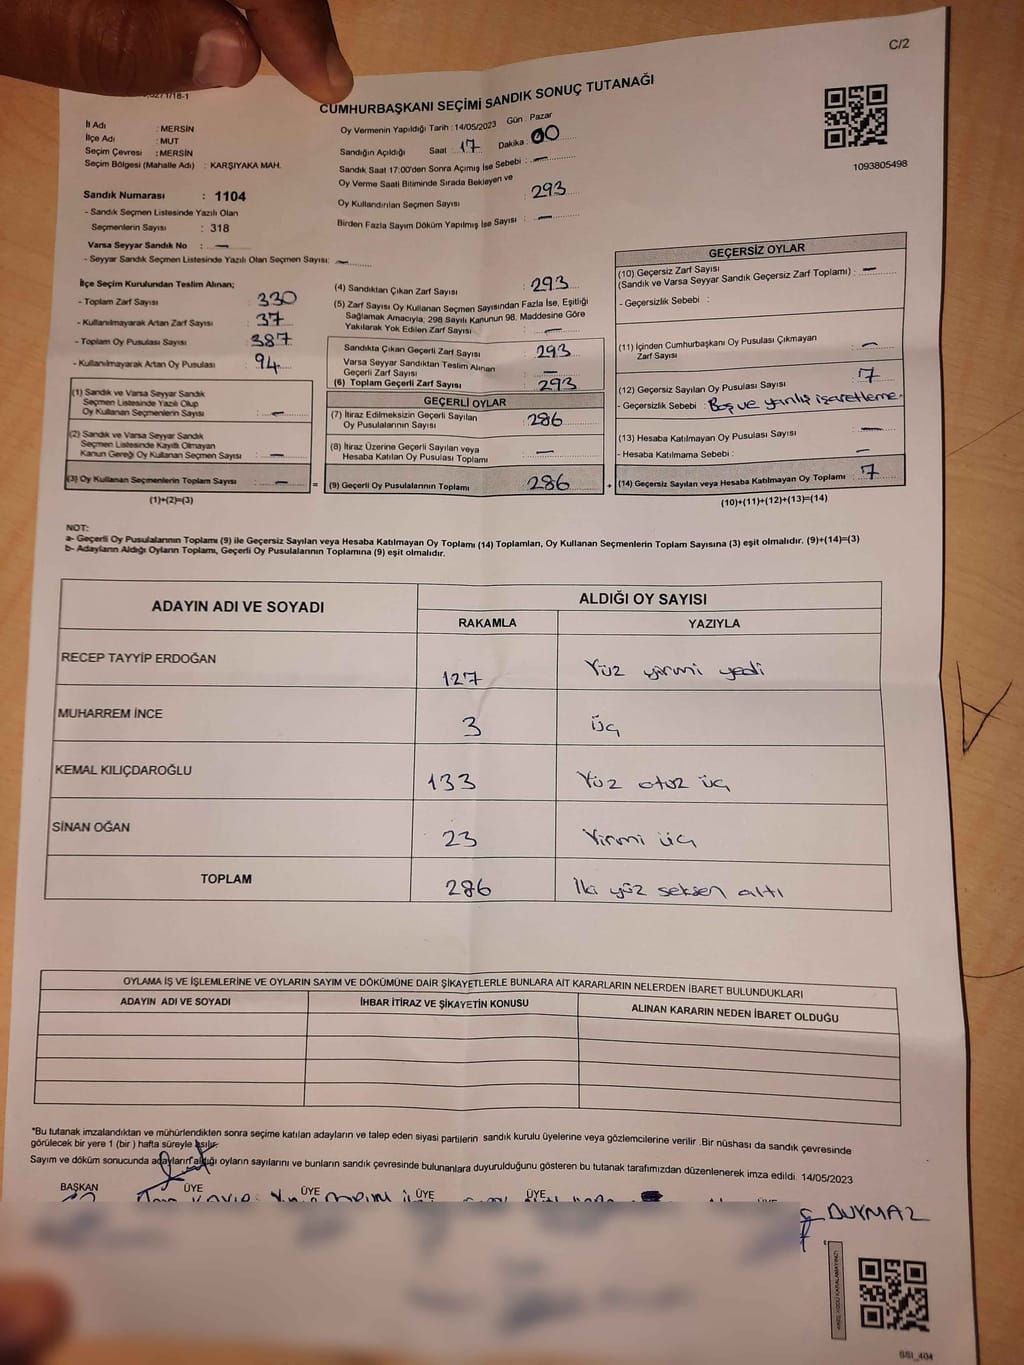 C/2
CUMHURBAŞKANI SEÇİMİ SANDIK SONUÇ TUTANAĞI
İl Adı : MERSİN
İlçe Adı : MUT
Seçim Çevresi : MERSİN
Seçim Bölgesi (Mahalle Adı) : KARŞIYAKA MAH.
Oy Vermenin Yapıldığı Tarih : 14/05/2023 Gün : Pazar
Sandığın Açıldığı Saat : 17 Dakika : 00
Sandık Saat 17:00'den Sonra Açımış İse Sebebi : —
Oy Verme Saati Bitiminde Sırada Bekleyen ve
Oy Kullandırılan Seçmen Sayısı : 293
Birden Fazla Sayım Döküm Yapılmış İse Sayısı : —
1093805498
Sandık Numarası : 1104
- Sandık Seçmen Listesinde Yazılı Olan
Seçmenlerin Sayısı : 318
Varsa Seyyar Sandık No : —
- Seyyar Sandık Seçmen Listesinde Yazılı Olan Seçmen Sayısı: —
İlçe Seçim Kurulundan Teslim Alınan;
- Toplam Zarf Sayısı : 330
- Kullanılmayarak Artan Zarf Sayısı : 37
- Toplam Oy Pusulası Sayısı : 387
- Kullanılmayarak Artan Oy Pusulası : 94
(1) Sandık ve Varsa Seyyar Sandık
Seçmen Listesinde Yazılı Olup
Oy Kullanan Seçmenlerin Sayısı : —
(2) Sandık ve Varsa Seyyar Sandık
Seçmen Listesinde Kayıtlı Olmayan
Kanun Gereği Oy Kullanan Seçmen Sayısı : —
(3) Oy Kullanan Seçmenlerin Toplam Sayısı : —
(1)+(2)=(3)
(4) Sandıktan Çıkan Zarf Sayısı : 293
(5) Zarf Sayısı Oy Kullanan Seçmen Sayısından Fazla İse, Eşitliği
Sağlamak Amacıyla, 298 Sayılı Kanunun 98. Maddesine Göre
Yakılarak Yok Edilen Zarf Sayısı : —
Sandıkta Çıkan Geçerli Zarf Sayısı : 293
Varsa Seyyar Sandıktan Teslim Alınan
Geçerli Zarf Sayısı : —
(6) Toplam Geçerli Zarf Sayısı : 293
GEÇERLİ OYLAR
(7) İtiraz Edilmeksizin Geçerli Sayılan
Oy Pusulalarının Sayısı : 286
(8) İtiraz Üzerine Geçerli Sayılan veya
Hesaba Katılan Oy Pusulası Toplamı : —
= (9) Geçerli Oy Pusulalarının Toplamı : 286 +
GEÇERSİZ OYLAR
(10) Geçersiz Zarf Sayısı
(Sandık ve Varsa Seyyar Sandık Geçersiz Zarf Toplamı) : —
- Geçersizlik Sebebi :
(11) İçinden Cumhurbaşkanı Oy Pusulası Çıkmayan
Zarf Sayısı : —
(12) Geçersiz Sayılan Oy Pusulası Sayısı : 7
- Geçersizlik Sebebi : Boş ve yanlış işaretleme
(13) Hesaba Katılmayan Oy Pusulası Sayısı : —
- Hesaba Katılmama Sebebi : —
(14) Geçersiz Sayılan veya Hesaba Katılmayan Oy Toplamı : 7
(10)+(11)+(12)+(13)=(14)
NOT:
a- Geçerli Oy Pusulalarının Toplamı (9) ile Geçersiz Sayılan veya Hesaba Katılmayan Oy Toplamı (14) Toplamları, Oy Kullanan Seçmenlerin Toplam Sayısına (3) eşit olmalıdır. (9)+(14)=(3)
b- Adayların Aldığı Oyların Toplamı, Geçerli Oy Pusulalarının Toplamına (9) eşit olmalıdır.
ADAYIN ADI VE SOYADI ALDIĞI OY SAYISI
RAKAMLA YAZIYLA
RECEP TAYYİP ERDOĞAN 127 Yüz yirmi yedi
MUHARREM İNCE 3 üç
KEMAL KILIÇDAROĞLU 133 Yüz otuz üç
SİNAN OĞAN 23 Yirmi üç
TOPLAM 286 İki yüz seksen altı
OYLAMA İŞ VE İŞLEMLERİNE VE OYLARIN SAYIM VE DÖKÜMÜNE DAİR ŞİKAYETLERLE BUNLARA AİT KARARLARIN NELERDEN İBARET BULUNDUKLARI
ADAYIN ADI VE SOYADI İHBAR İTİRAZ VE ŞİKAYETİN KONUSU ALINAN KARARIN NEDEN İBARET OLDUĞU
*Bu tutanak imzalandıktan ve mühürlendikten sonra seçime katılan adayların ve talep eden siyasi partilerin sandık kurulu üyelerine veya gözlemcilerine verilir. Bir nüshası da sandık çevresinde
görülecek bir yere 1 (bir) hafta süreyle asılır.
Sayım ve döküm sonucunda adayların aldığı oyların sayılarını ve bunların sandık çevresinde bulunanlara duyurulduğunu gösteren bu tutanak tarafımızdan düzenlenerek imza edildi 14/05/2023
BAŞKAN ÜYE ÜYE ÜYE ÜYE
DUYMAZ
SSI_404